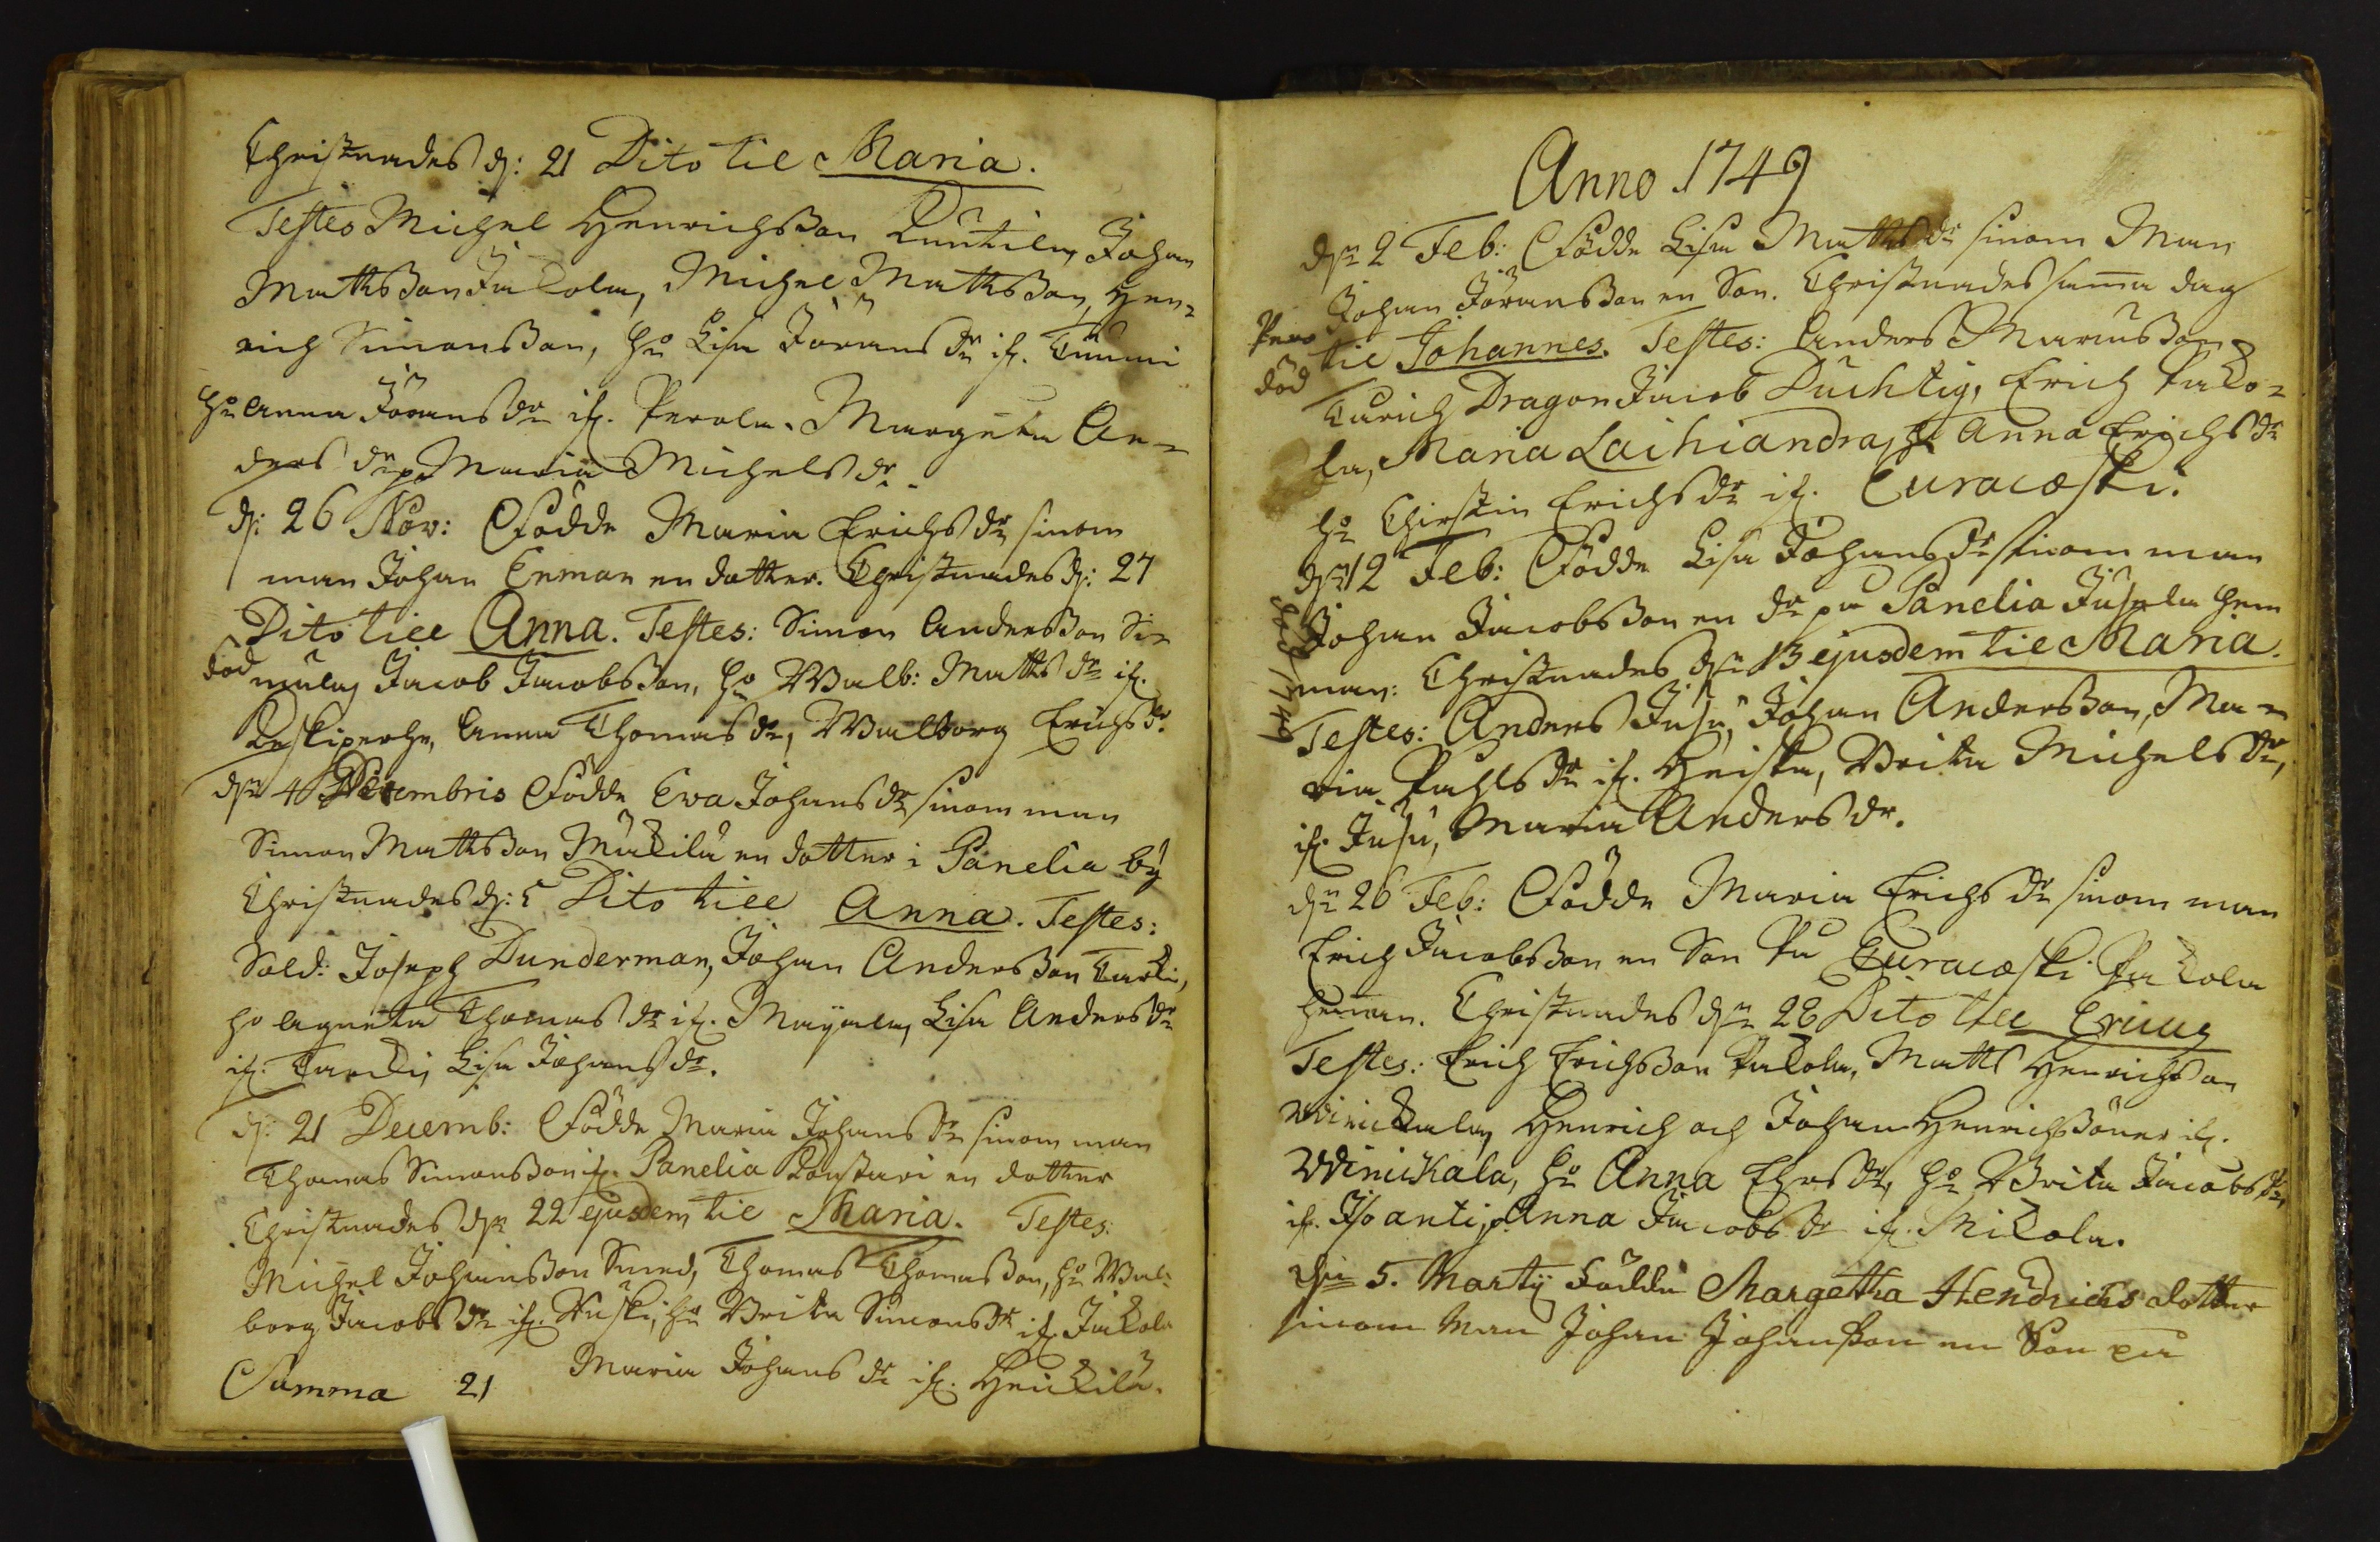 Christnades d: 21 Dito til Maria.
Testes Michel Henrichsson Kuutila, Johan
Mathsson Jackola, Michel Mathsson, Hen-
rich Simonsson, ho Lisa Jörans dr if. Tuumi
ho Anna Jörans dr if. Perola. Margeta An-
ders dr, p. Maria Michels dr.
d: 26 Nov: Födde Maria Erichs dr sinom
man Johan Enman en dotter. Christnades d: 27
Dito till Anna. Testes: Simon Andersson Si-
död mula, Jacob Jacobsson, ho Walb: Matts dr if.
Anna Thomas dr, Walborg Erichs dr.
dn 4 Decembris Födde Ewa Johans dr sinom man
Simon Mathsson Mickilä en dotter i Panelia by
Christnades d: 5 Dito till Anna. Testes:
Sold: Joseph Dunderman, Johan Andersson Turcki,
ho Agneta Thomas dr if. Mayala, Lisa Anders dr
if. Turcki, Lisa Johans dr.
d: 21 Decemb: Födde Maria Johans dr sinom man
Thomas Simonsson if. Panelia en dotter
Christnades dn 22 ejusdem til Maria. Testes:
Michel Johansson Smed, Thomas Thomasson, ho Wal-
borg Jacobs dr if. ho Brita Simons dr if. Jackola
Maria Johans dr if. Heickilä.
Summa 21
Anno 1749
dn 2 Feb: Födde Lisa Matts dr sinom Man
Johan Jöransson en Son. Christnades samma dag
död til Johannes. Testes: Anders Marcusson
Dragon Jacob Duchtig, Erich Packo-
la, Maria Laihiandra, ho Anna Erichs dr
ho Christin Erichs dr if. Euracoski.
dn 12 Feb: Födde Lisa Johans dr sinom man
Johan Jacobsson en dr på Panelia Jusela hem
man: Christnades dn 13 ejusdem til Maria.
död 1749
Testes: Anders Jusu, Johan Andersson, Ma-
ria Pahls dr if. Heiska, Brita Michels dr,
if. Jusu, Maria Anders dr.
dn 26 Feb: Födde Maria Erichs dr sinom man
Erich Jacobsson en Son På Euracoski Packola
heman. Christnades dn 28 Dito till Ericus
Testes: Erich Erichsson Packola, Matts Henrichsson
Winickala, Henrich och Johan Henrichssöner if.
Winickala, ho Anna Ers dr, ho Brita Jacobs dr,
if. Iso anti, p. Anna Jacobs dr if. Mickola.
den 5. Martij Födde Margetha Hendrichs dotter
sinom Man Johan Johansson en Son på